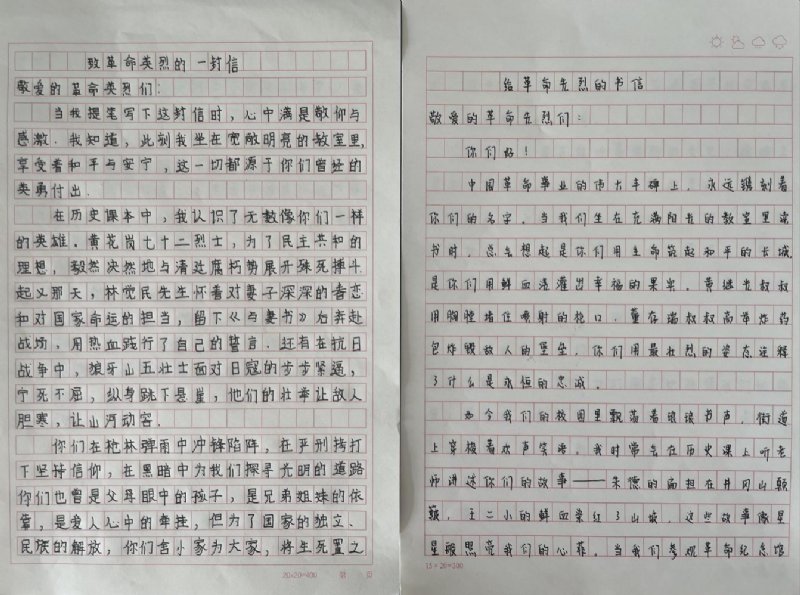 致革命英烈的一封信
敬爱的革命英烈们：
当我提笔写下这封信时，心中满是敬仰与
感激．我知道，此刻我坐在宽敞明亮的教室里，
享受着和平与安宁，这一切都源于你们曾经的
英勇付出．
在历史课本中，我认识了无数像你们一样
的英雄．黄花岗七十二烈士，为了民主共和的
理想，毅然决然地与清廷腐朽势展开殊死搏斗．
起义那天，林觉民先生怀着对妻子深深的眷恋
和对国家命运的担当，留下《与妻书》后奔赴
战场，用热血践行了自己的誓言．还有在抗日
战争中，狼牙山五壮士面对日寇的步步紧逼，
宁死不屈，纵身跳下悬崖，他们的壮举让敌人
胆寒，让山河动容．
你们在枪林弹雨中冲锋陷阵，在严刑拷打
下坚持信仰，在黑暗中为我们探寻光明的道路
你们也曾是父母眼中的孩子，是兄弟姐妹的依
靠，是爱人心中的牵挂，但为了国家的独立、
民族的解放，你们舍小家为大家，将生死置之
20×20=400 第 页
给革命先烈的书信
敬爱的革命先烈们：
你们好！
中国革命事业的伟大丰碑上，永远镌刻着
你们的名字．当我们坐在充满阳光的教室里读
书时，总会想起是你们用生命筑起和平的长城
是你们用鲜血浇灌出幸福的果实．黄继光叔叔
用胸膛堵住喷射的枪口，董存瑞叔叔高举炸药
包炸毁敌人的堡垒，你们用最壮烈的姿态诠释
了什么是永恒的忠诚．
如今我们的校园里飘荡着琅琅书声，街道
上穿梭着欢声笑语．我时常会在历史课上听老
师讲述你们的故事——朱德的扁担在井冈山颠
簸，王二小的鲜血染红了山坡，这些故事像星
星般照亮我们的心扉．当我们参观革命纪念馆
15×20=300